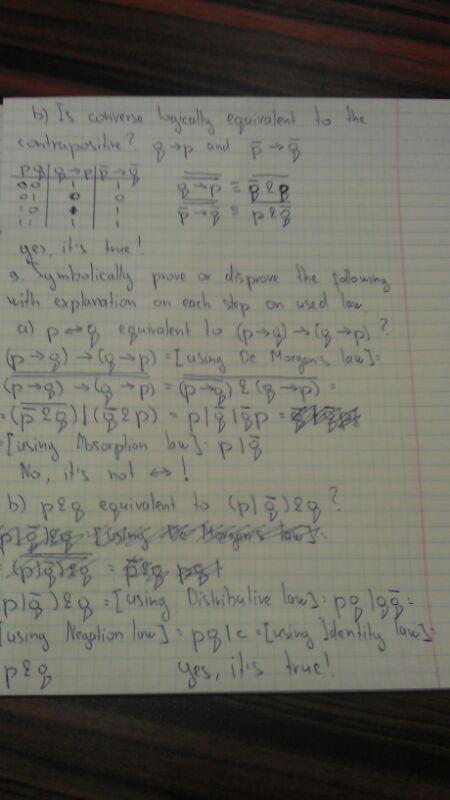 b) Is converse logically equivalent to the
contrapositive? q→p and p̄→q̄
p q | q→p | p̄→q̄
0 0 | 1 | 1
0 1 | 0 | 0
1 0 | 1 | 1
1 1 | 1 | 1
yes, it's true!
9. Symbolically prove or disprove the following
with explanation on each step on used law.
a) p↔q equivalent to (p→q)→(q→p)?
(p→q)→(q→p) = [using De Morgan's law]:
(p→q)→(q→p) = (p→q)&(q→p) =
= (p&q̄)|(q̄&p) = p|q̄|q̄p =
=[using Absorption law]: p|q̄
No, it's not ↔!
b) p&q equivalent to (p|q̄)&q?
(p|q̄)&q = [using De Morgan's law]:
= (p|q̄)&q =
p|q̄)&q =[using Distributive law]: pq|qq̄ =
[using Negation law] = pq|c =[using Identity law]=
p&q yes, it's true!